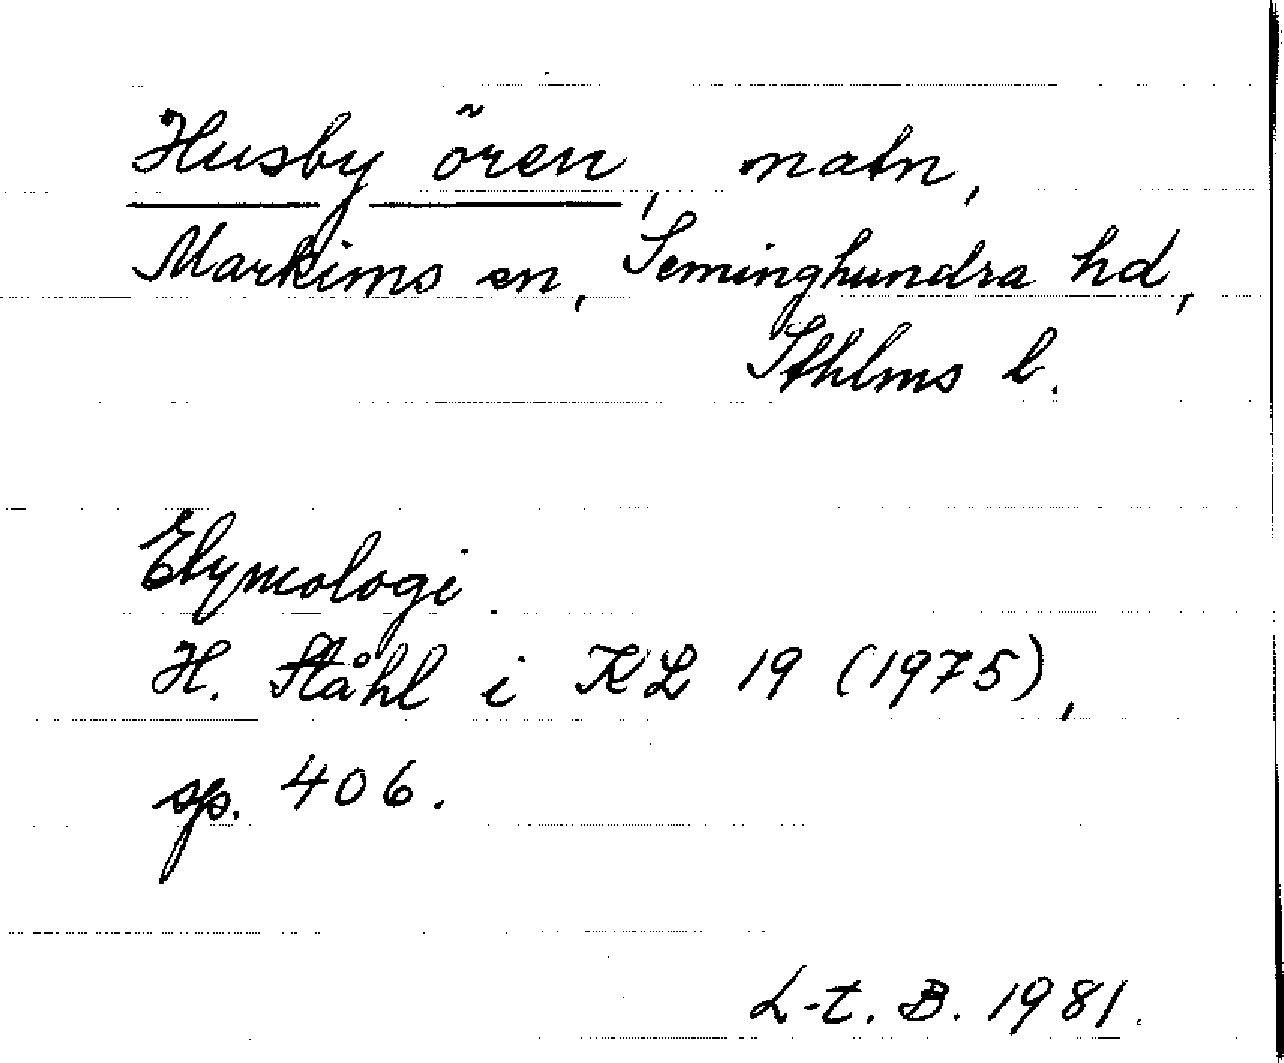 Husby ören, natn,
Markims sn, Seminghundra hd,
Sthlms l.
Etymologi.
H. Ståhl i KL 19 (1975),
sp. 406.
L-t. B. 1981.